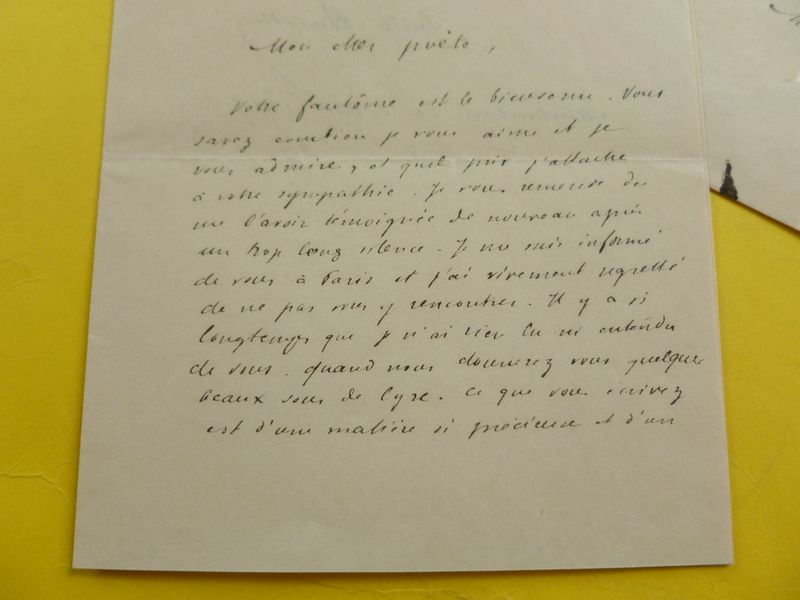 Mon cher poète,
Votre fantôme est le bienvenu. Vous
savez combien je vous aime et je
vous admire, et quel prix j'attache
à votre sympathie. Je vous remercie de
me l'avoir témoignée de nouveau après
un trop long silence. Je me suis informé
de vous à Paris et j'ai vivement regretté
de ne pas vous y rencontrer. Il y a si
longtemps que je n'ai rien lu ni entendu
de vous. Quand nous donnerez vous quelques
beaux sons de lyre. Ce que vous écrivez
est d'une matière si précieuse et d'un